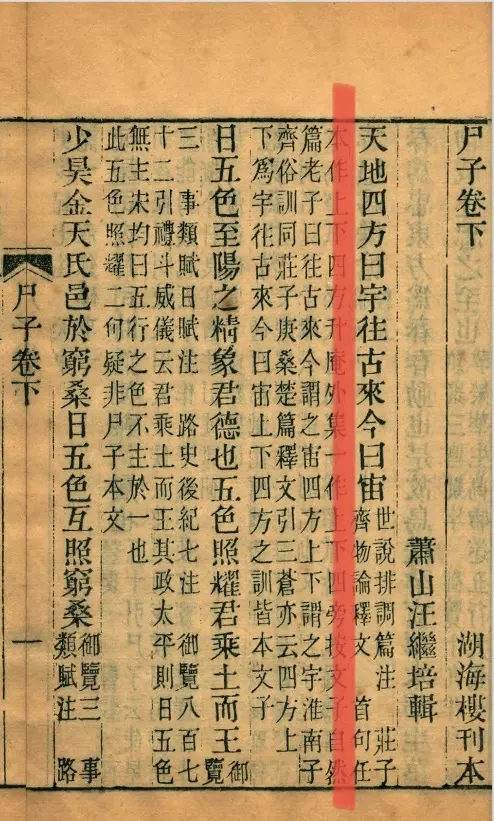 尸子卷下 湖海樓刊本
蕭山汪繼培輯
天地四方曰宇往古來今曰宙
世說排調篇注 莊子
齊物論釋文 首句任
本作上下四方升庵外集一作上下四旁按文子自然
篇老子曰往古來今謂之宙四方上下謂之宇淮南子
齊俗訓同莊子庚桑楚篇釋文引三蒼亦云四方上
下爲宇往古來今曰宙上下四方之訓皆本文子
日五色至陽之精象君德也五色照耀君乘土而王
御
覽
三 事類賦日賦注 路史後紀七注 御覽八百七
十二引禮斗威儀云君乘土而王其政太平則日五色
無主宋均曰五行之色不主於一也
此五色照耀二何疑非尸子本文
少昊金天氏邑於窮桑日五色互照窮桑
御覽三 事
類賦注 路
尸子卷下 一